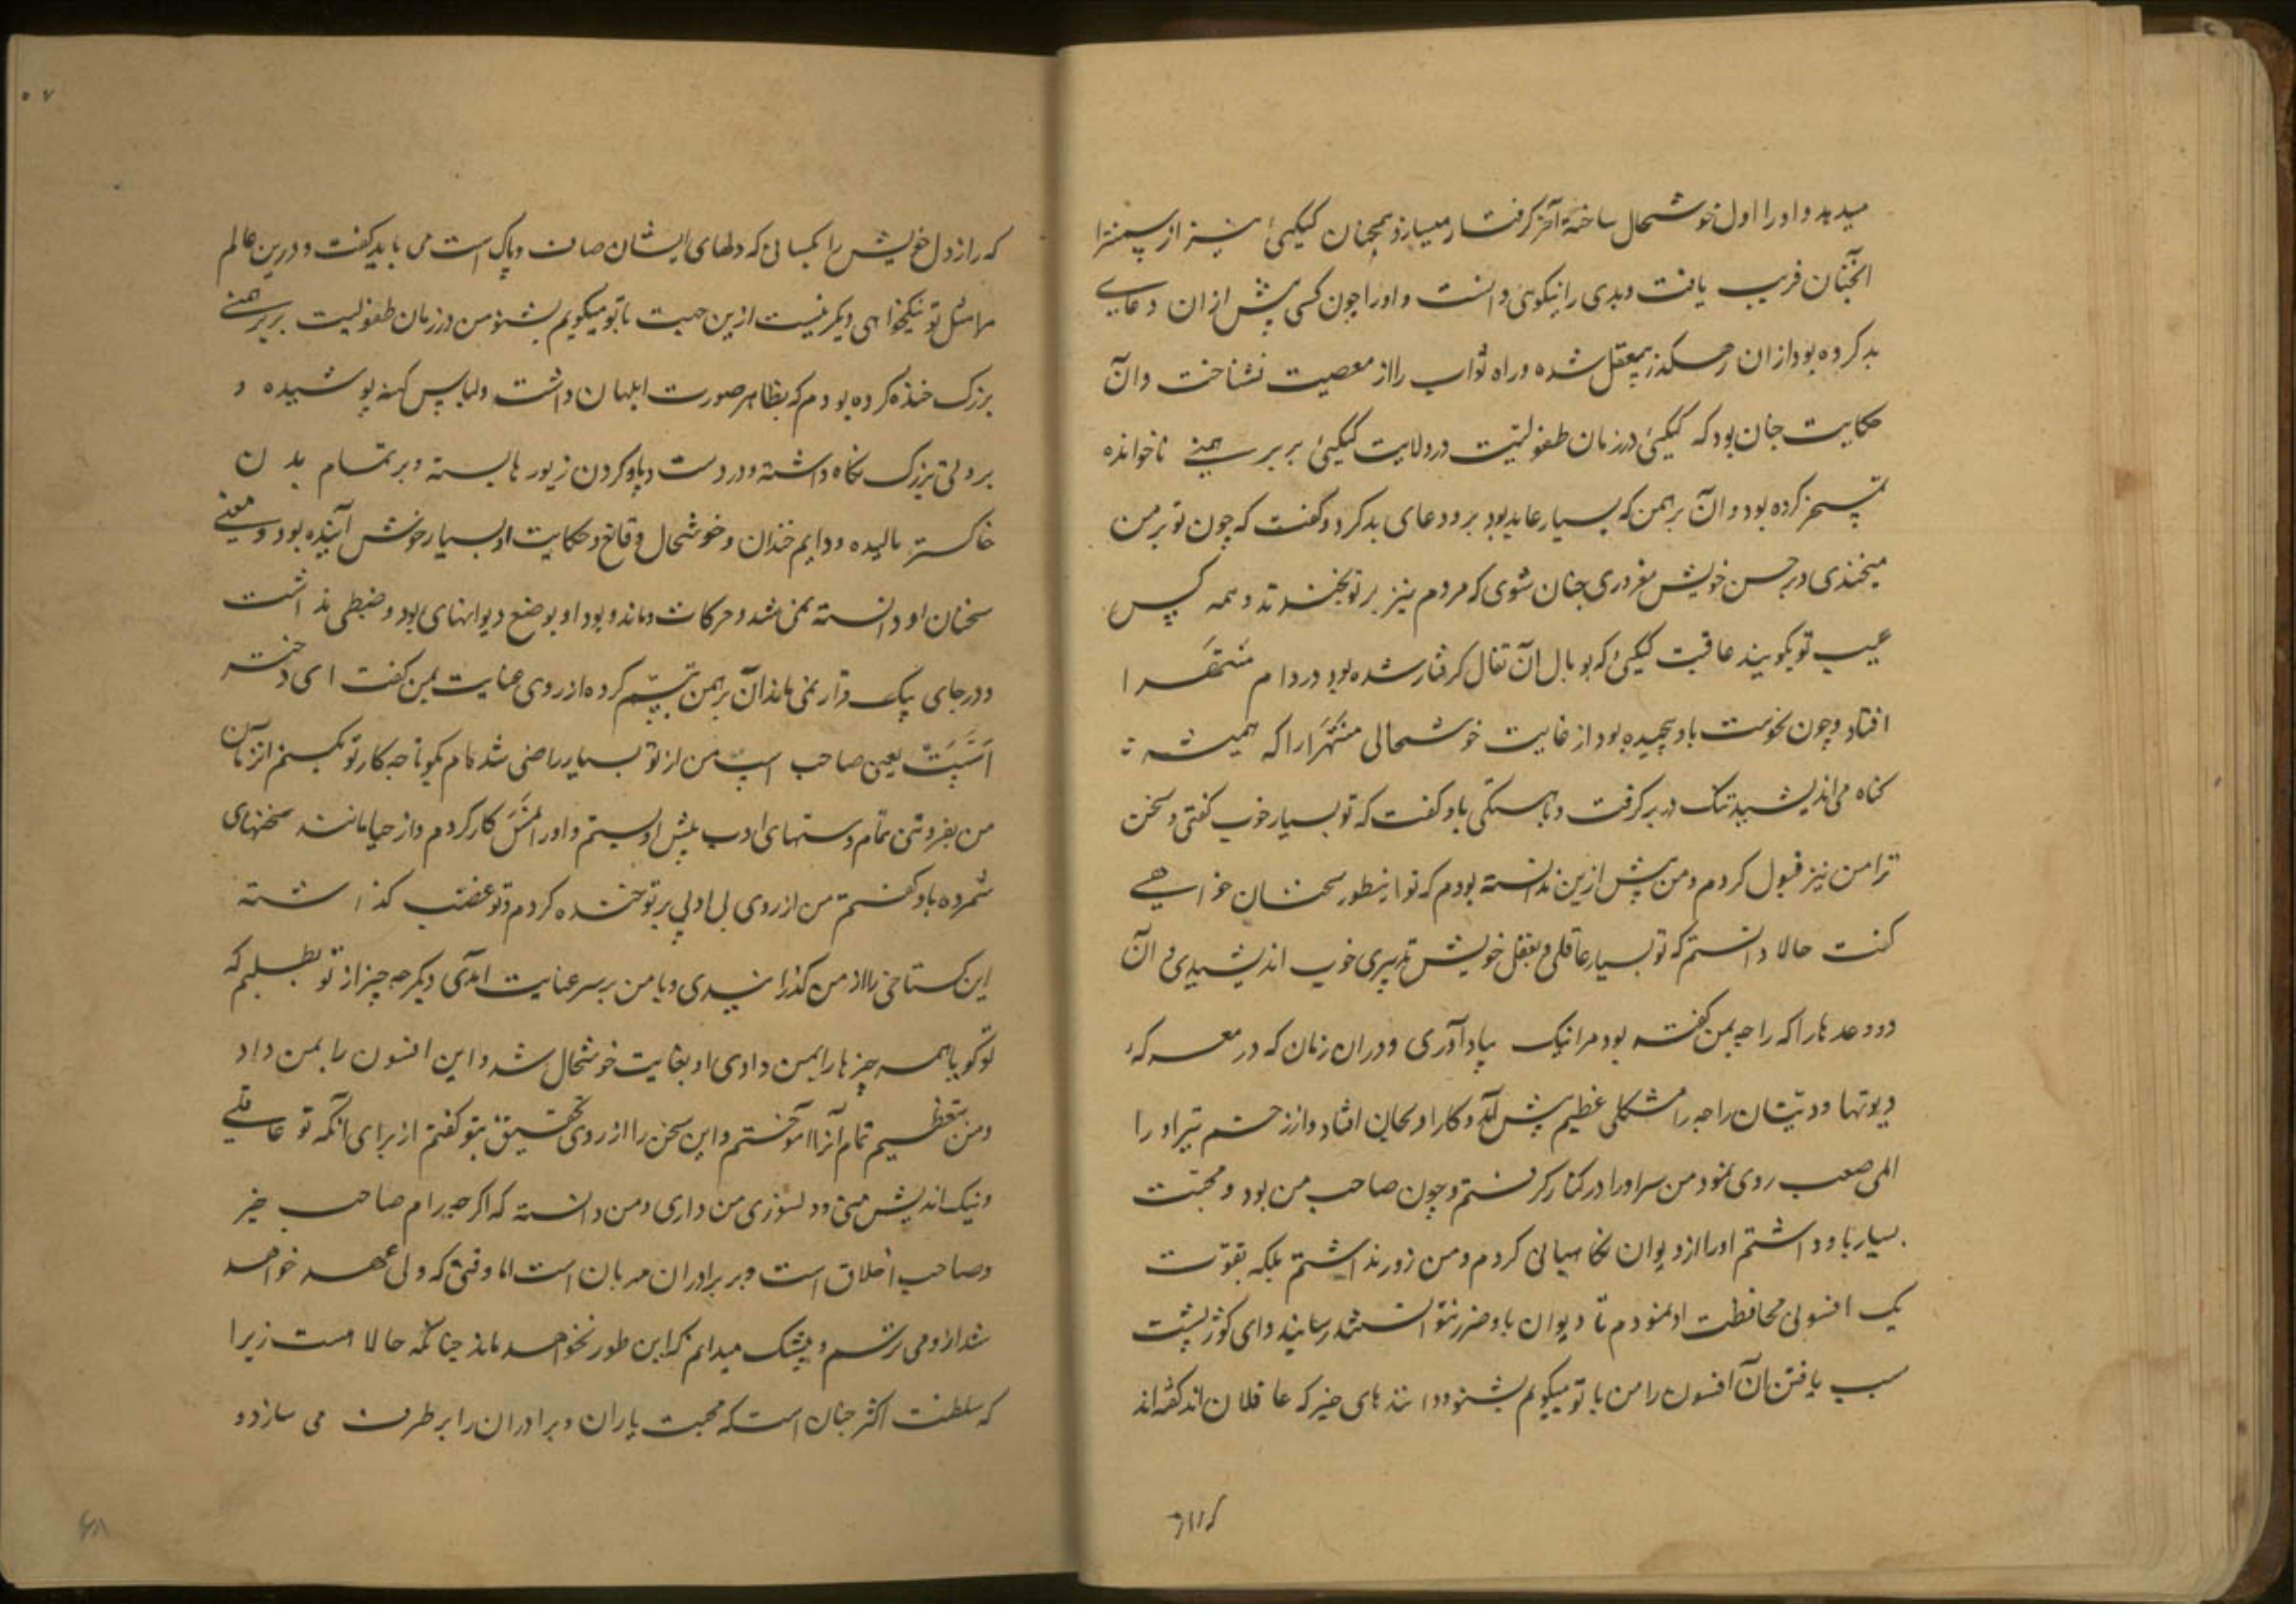 میدهد و او را اول خوشحال ساخته آخر گرفتار میسازد همچنان کیکیئ نیز از پسنترا
آنچنان فریب یافت و بدی را نیکوئی دانست و او را چون کسی پیش ازان دعای
بد کرده بود ازان رهگذر بیعقل شده و راه ثواب را از معصیت نشناخت و آن
حکایت چنان بود که کیکیئ در زمان طفولیت در ولایت کیکیئ بر برهمنے ناخوانده
تمسخر کرده بود و آن برهمن که بسیار عابد بود برو دعای بد کرد و گفت که چون تو بر من
میخندی و بر حسن خویش مغروری چنان شوی که مردم نیز بر تو بخندند و همه کس
عیب تو گویند عاقبت کیکیئ که بوبال آن تغال گرفتار شده بود در دام منتهرا
افتاد و چون نحوست باو پیچیده بود از غایت خوشحالی منتهرا را که همیشه
گناه می اندیشید تنگ در بر گرفت و باهستگی باو گفت که تو بسیار خوب گفتی و سخن
ترا من نیز قبول کردم و من پیش ازین ندانسته بودم که تو اینطور سخنان خواهے
گفت حالا دانستم که تو بسیار عاقلی و بعقل خویش تدبیری خوب اندیشیدی و آن
دو وعده را که راجه بمن گفته بود مرا نیک بیاد آوری و دران زمان که در معرکهٔ
دیوتها و دیتان راجه را مشکلی عظیم پیش آمد و کار او بجان افتاد و از زخم تیر او را
المی صعب روی نمود من سر او را در کنار گرفتم و چون صاحب من بود و محبت
بسیار باو داشتم او را از دیوان نگاهبانی کردم و من زور نداشتم بلکه بقوت
یک افسونی محافظت او نمودم تا دیوان باو ضرر نتوانستند رسانید و ای کوژپشت
سبب یافتن آن افسون را من با تو میگویم بشنو و دانندهای خبر که عاقلان اند گفته اند
که راز
که راز دل خویش را بکسانی که دلهای ایشان صاف و پاک است می باید گفت و درین عالم
مرا مثل تو نیکخواهی دیگر نیست ازین جهت با تو میگویم بشنو من در زمان طفولیت بر برهمنے
بزرگ خنده کرده بودم که بظاهر صورت ابلهان داشت و لباس کهنه پوشیده و
بروتی بزرگ نگاه داشته و در دست و پا و گردن زیورها بسته و بر تمام بدن
خاکستر مالیده و دایم خندان و خوشحال و قانع و حکایت او بسیار خوش آینده بود و معنے
سخنان او دانسته نمی شد و حرکات و ماند و بود او بوضع دیوانهای بود و ضبطی نداشت
و در جای یک قرار نمی ماند آن برهمن تبسم کرده از روی عنایت بمن گفت ای دختر
اشپت یعنی صاحب اسپ من از تو بسیار راضی شده ام بگو تا چه کار تو بکنم انزمان
من بفروتنی تمام دستهای ادب پیش او بستم و او را نمسکار کردم و از حیا مانند سخنهای
شمرده باو گفتم من از روی بی ادبی بر تو خنده کردم و تو غضب گذاشته
این گستاخی را از من گذرانیدی و با من بر سر عنایت آمدی دیگر چه چیز از تو بطلبم که
تو گویا همه چیزها را بمن دادی او بغایت خوشحال شد و این افسون را بمن داد
و من بتعظیم تمام آنرا آموختم و این سخن را از روی تحقیق بتو گفتم از برای آنکه تو عاقلے
و نیک اندیش منی و دلسوزی من داری و من دانسته که اگرچه رام صاحب خیر
و صاحب اخلاق است و بر برادران مهربان است اما وقتی که ولی عهد خواهد
شد ازو می ترسم و بیشک میدانم که این طور نخواهد ماند چنانکه حالا هست زیرا
که سلطنت اکثر چنان است که محبت یاران و برادران را بر طرف می سازد و